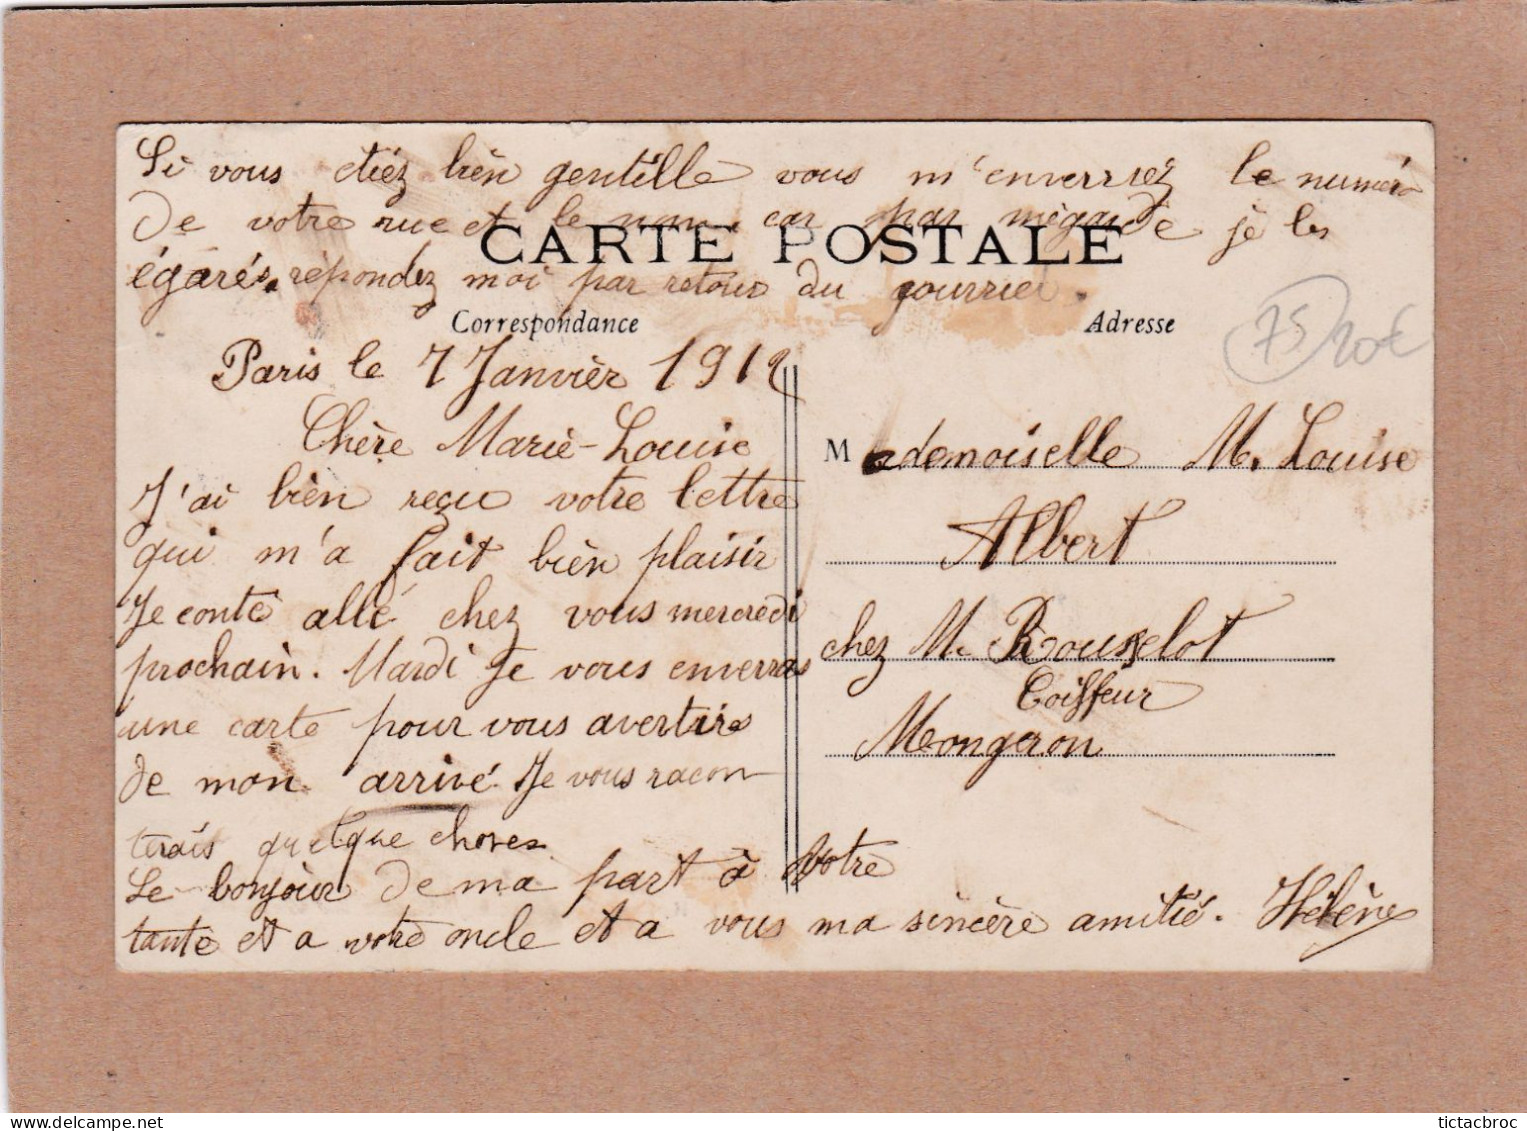 Si vous etiéz bien gentille vous m'enverriez le numéro
De votre rue et le nom. car par mègarde je les
égarés. répondez moi par retour du courrier.
CARTE POSTALE
Correspondance
Adresse
75 20€
Paris le 7 Janvièr 1912
Chère Marie-Louise
J'ai bièn reçu votre lettre
qui m'a fait bièn plaisir
Je conte allé chez vous mercredi
prochain. Mardi Je vous enverras
une carte pour vous avertire
De mon arrivé. Je vous racon
terais quelque choses.
Le bonjour De ma part à votre
tante et a votre oncle et a vous ma sincère amitié. Hélène
Mademoiselle M. Louise
Albert
chez M. Rousselot
Coiffeur
Mongeron
tictacbroc